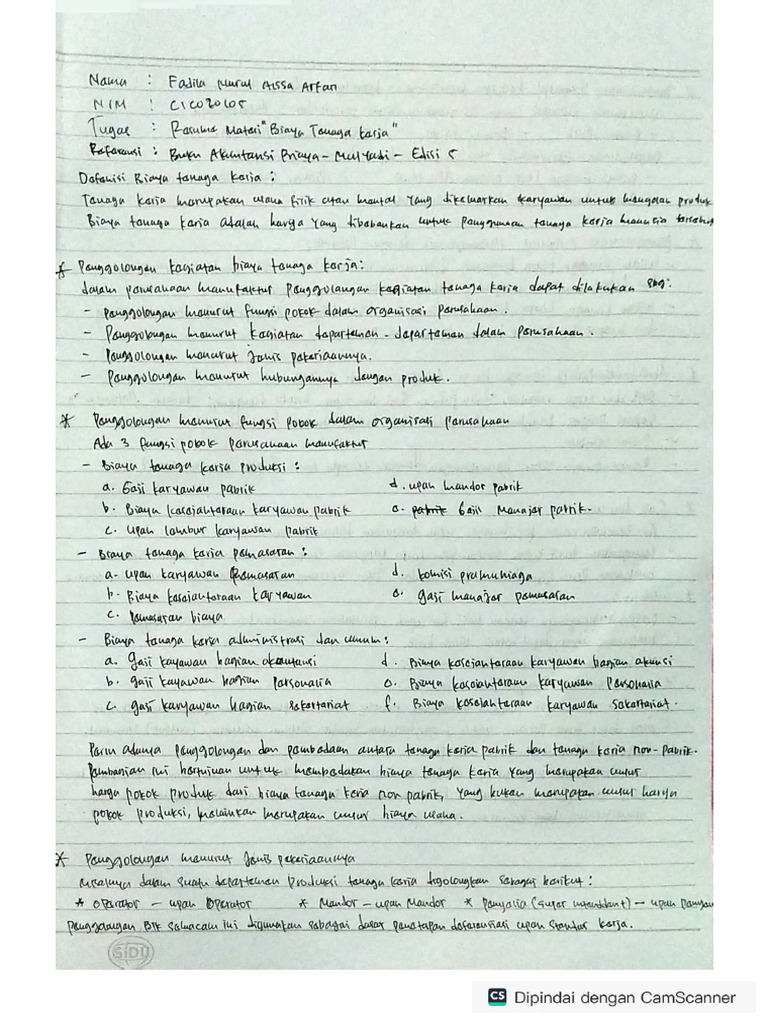 Nama : Fadila Nurul Aissa Arfan
NIM : C1C020105
Tugas : Resume Materi "Biaya Tenaga Kerja"
Referensi : Buku Akuntansi Biaya - Mulyadi - Edisi 5
Defenisi Biaya tenaga Kerja :
Tenaga Kerja merupakan usaha fisik atau mental yang dikeluarkan karyawan untuk mengolah produk
Biaya tenaga kerja adalah harga yang dibebankan untuk penggunaan tenaga kerja manusia tersebut
* Penggolongan kegiatan biaya tenaga kerja:
dalam perusahaan manufaktur penggolongan kegiatan tenaga kerja dapat dilakukan sbg:
- penggolongan menurut fungsi pokok dalam organisasi perusahaan.
- Penggolongan menurut kegiatan departemen-departemen dalam perusahaan.
- Penggolongan menurut Jenis pekerjaannya.
- Penggolongan menurut hubungannya dengan produk.
* Penggolongan menurut fungsi pokok dalam organisasi perusahaan
Ada 3 fungsi pokok perusahaan manufaktur
- Biaya tenaga kerja produksi :
a. Gaji karyawan pabrik d. upah mandor pabrik
b. Biaya kesejahteraan karyawan pabrik e. pabrik Gaji Manajer pabrik.
c. upah lembur karyawan pabrik
- Biaya tenaga kerja pemasaran :
a. upah karyawan Pemasaran d. komisi pramuniaga
b. Biaya kesejahteraan karyawan e. gaji manajer pemasaran
c. pemasaran biaya
- Biaya tenaga kerja administrasi dan umum :
a. gaji kayawan bagian akuntansi d. Biaya kesejahteraan karyawan bagian akunsi
b. gaji kayawan bagian Personalia e. Biaya kesejahteraan karyawan Personalia
c. gaji karyawan bagian sekertariat f. Biaya kesejahteraan karyawan sekertariat.
Perlu adanya penggolongan dan pembedaan antara tenaga kerja pabrik dan tenaga kerja non-pabrik.
Pembagian ini bertujuan untuk membedakan biaya tenaga kerja yang merupakan unsur
harga pokok produk dari biaya tenaga kerja non pabrik, yang bukan merupakan unsur harga
pokok produksi, melainkan merupakan unsur biaya usaha.
* Penggolongan menurut Jenis pekerjaannya
misalnya dalam suatu departemen Produksi tenaga kerja digolongkan sebagai berikut :
* operator - upah operator * Mandor - upah Mandor * Penyelia (super intendant) - upah
penggolongan BTK semacam ini digunakan sebagai dasar penetapan deferensiasi upah standar kerja.
SIDU
CS Dipindai dengan CamScanner